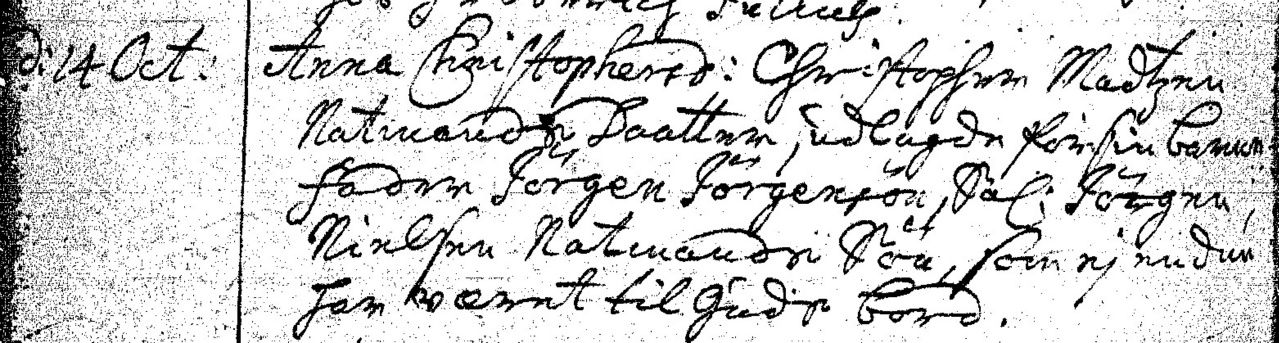 di 14 Oct: Anna Christophersd: Christopher Madtzen
Natmands Daatter, udlagde for sin barne-
fader Jörgen Jörgensön, Sal: Jörgen
Nielsen Natmands Sön, som ej endnu
har været til Guds bord.